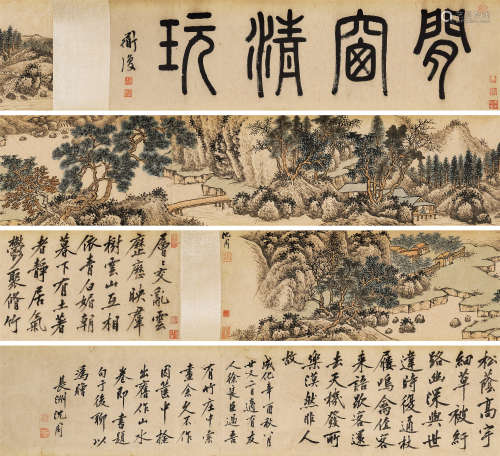 閒窗清玩
沈周
層層交亂雲
歷歷映羣
樹雲山互相
依青白媚朝
暮下有土著
者靜居氣
鬱聚脩竹
松蔭高宇
細草被行
路幽深與世
違時復通杖
屨鳴禽佐客
來語歌客還
去天機發所
樂漠然非人
故
成化辛酉秋八月
廿二日適有友
人徐長臣過吾
有竹庄中索
畫余久不作
因篋中撿
出舊作山水
卷即書題
句于後聊以
為贈
長洲沈周